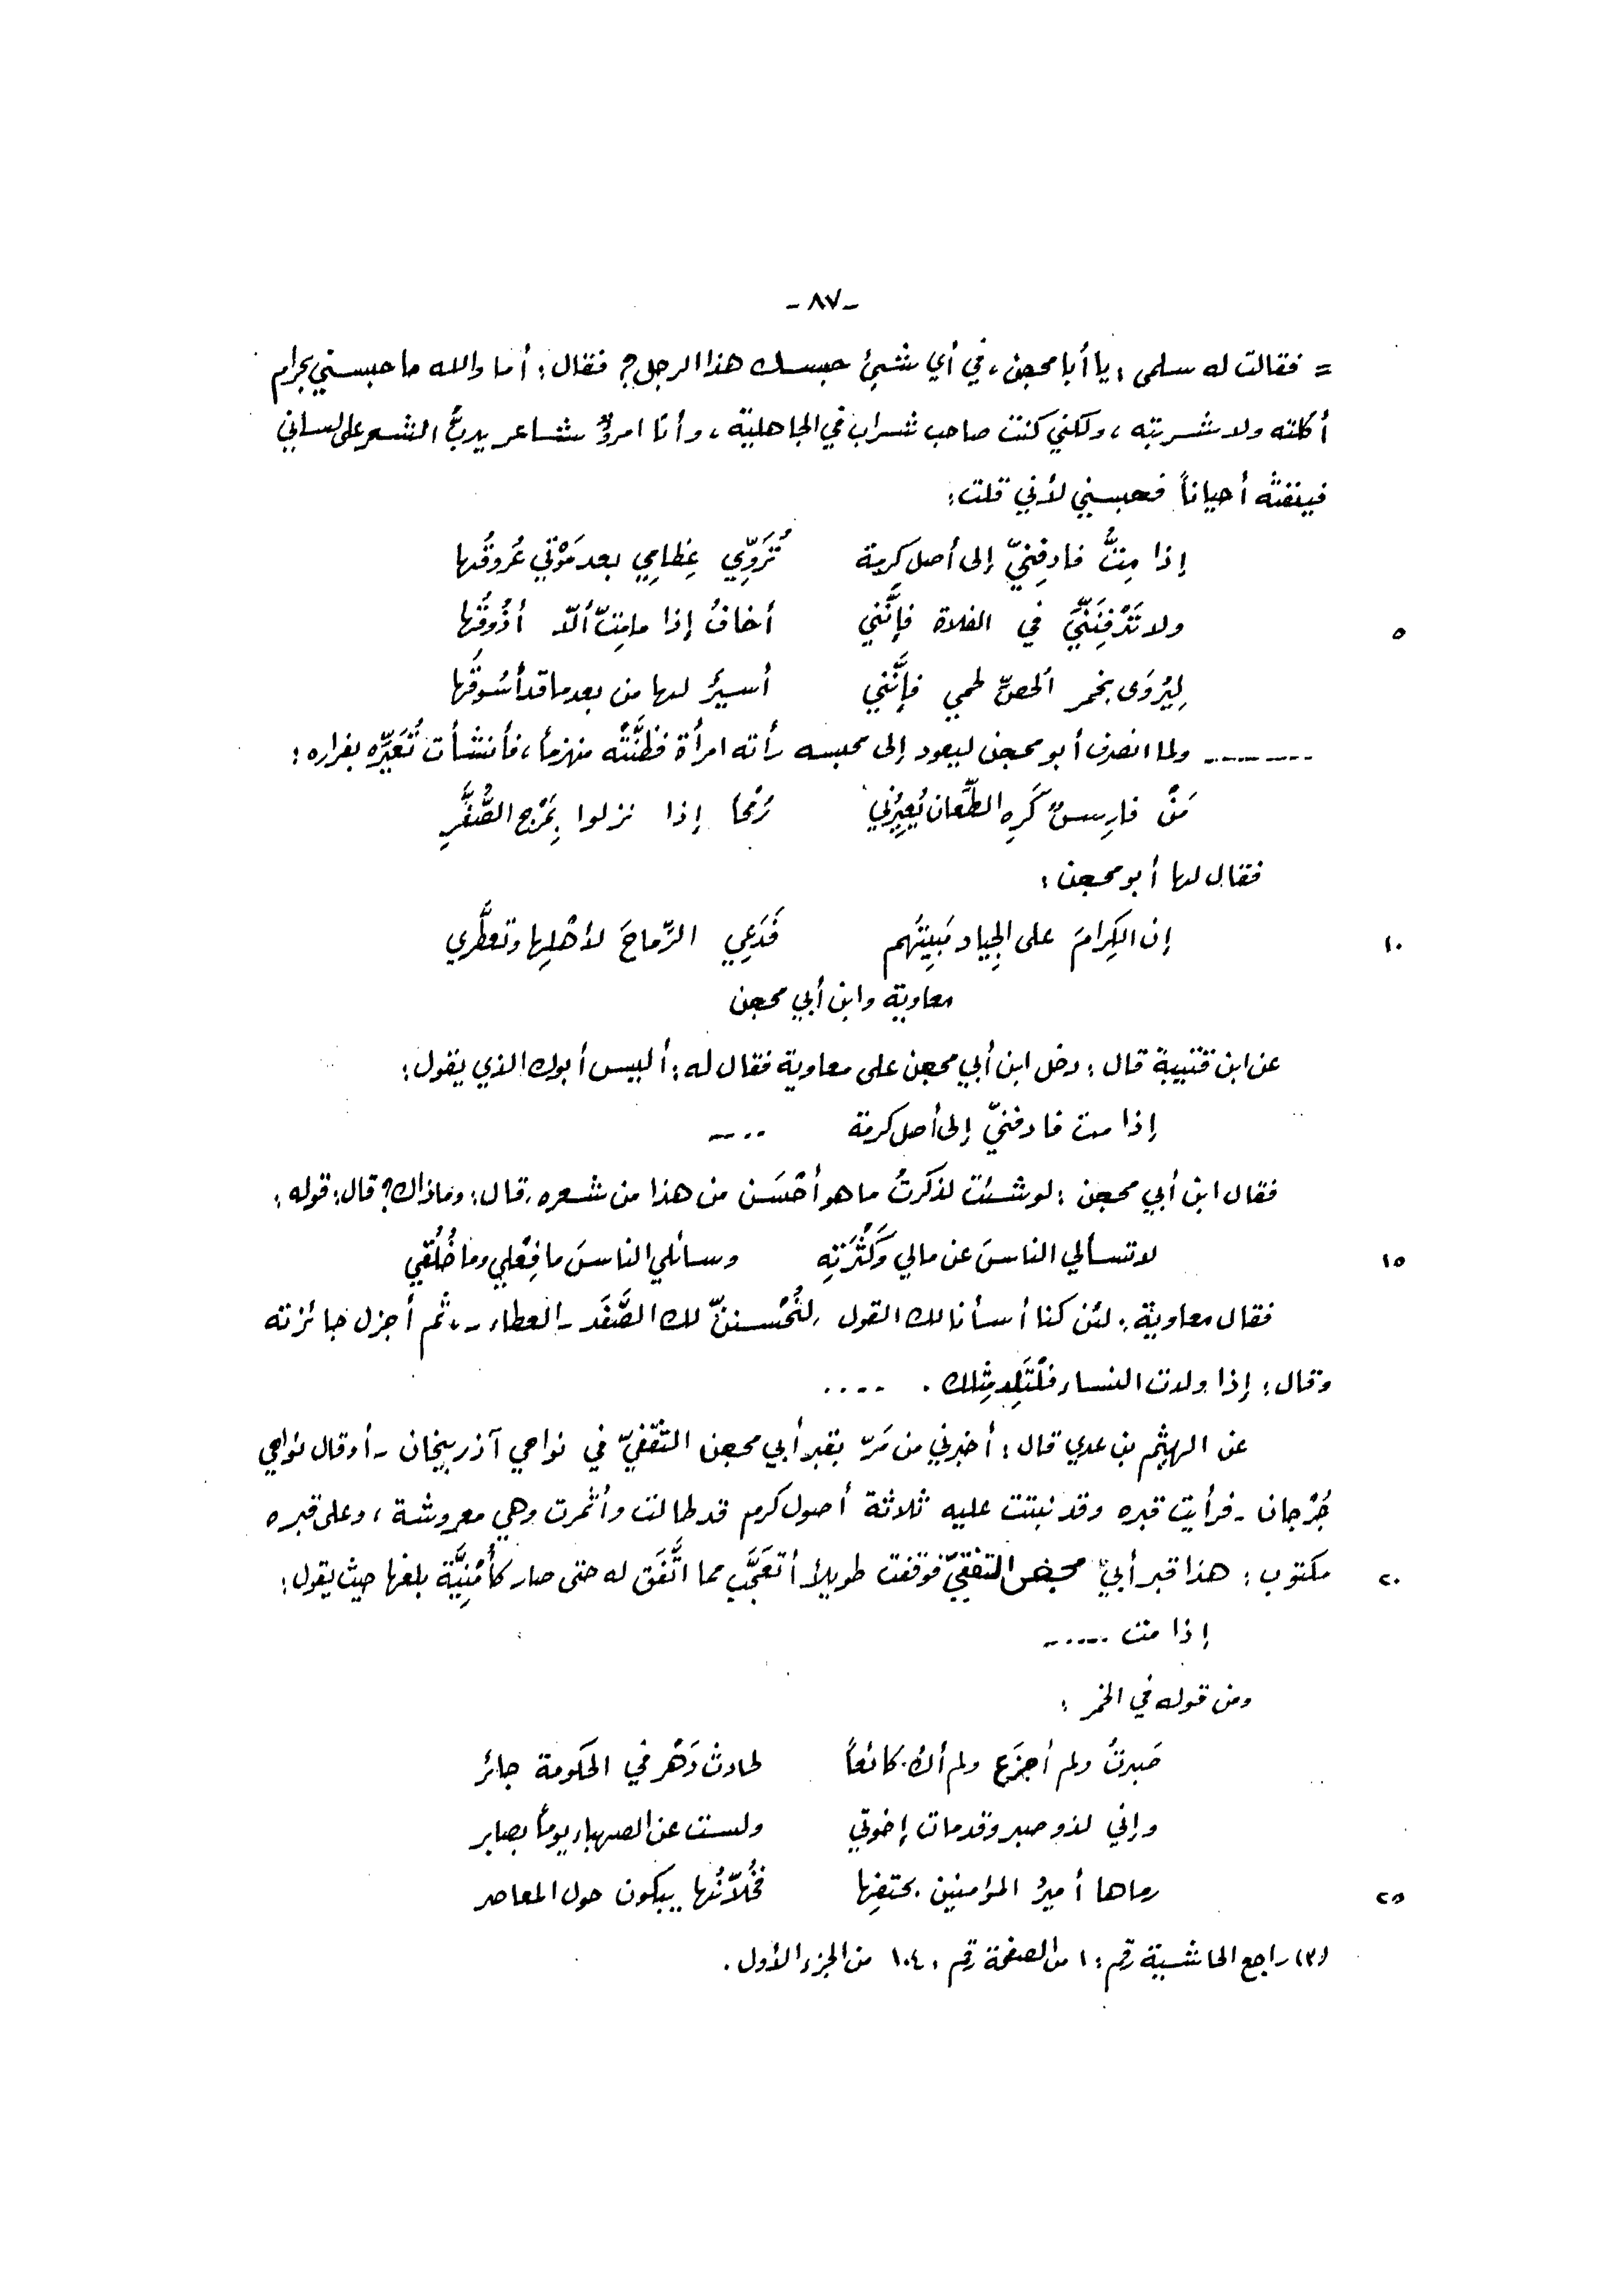 -٨٧-
= فقالت له سلمى: يا أبا محجن، في أي شيئ حبسك هذا الرجل؟ فقال: أما والله ما حبسني بحرام
أكلته ولا شربته، ولكني كنت صاحب شراب في الجاهلية، وأنا امرؤ شاعر يدبُّ الشعر على لساني
فينفثه أحياناً فحبسني لأني قلت:
إذا مِتُّ فادفِنيّ إلى أصل كرمة تُرَوِّي عِظامِي بعد مَوْتي عُروقُها
٥ ولا تَدْفِنَنِّيَ في الفلاة فإنَّني أخافُ إذا مامِتّ ألّا أذُوقُها
لِيُرْوَى بخمر الحصّ لحمي فإنَّني أسيرٌ لها من بعد ما قد أسُوقُها
ــــ ولما انصرف أبو محجن ليعود إلى محبسه رأته امرأة فظنَّتْه منهزماً، فأنشأت تُعَيِّره بفراره:
مَنْ فارِسٌ كَرِه الطِّعان يُعِيرُني رُمْحاً إذا نزلوا بِمَرْج الصُّفَّرِ
فقال لها أبو محجن:
١٠ إن الكِرامَ على الجِياد مَبِيتُهم فَدَعِي الرِّماحَ لأهْلِها وتعطَّري
معاوية وابن أبي محجن
عن ابن قتيبة قال: دخل ابن أبي محجن على معاوية فقال له: أليس أبوك الذي يقول:
إذا مت فادفنيّ إلى أصل كرمة ....
فقال ابن أبي محجن: لو شئت لذكرتُ ما هو أحْسَن من هذا من شعره، قال: وماذاك؟ قال: قوله:
١٥ لا تسألي الناسَ عن مالي وكَثْرَتِهِ وسائلي الناسَ ما فِعْلي وما خُلُقي
فقال معاوية: لئن كنا أسأنا لك القول، لنُحْسننّ لك الصَّفَد - العطاء -، ثم أجزل جائزته
وقال: إذا ولدت النساء فلْتَلِد مِثلك. ....
عن الهيثم بن عدي قال: أخبرني من مَرّ بقبر أبي محجن الثقفيّ في نواحي آذربيجان - أو قال نواحي
جُرْجان - فرأيت قبره وقد نبتت عليه ثلاثة أصول كرم قد طالت وأثمرت وهي معروشة، وعلى قبره
٢٠ مكتوب: هذا قبر أبي محجن الثقفيّ فوقفت طويلاً أتعَجَّب مما اتَّفَق له حتى صار كأُمْنِيَّة بلغها حيث يقول:
إذا مت .....
ومن قوله في الخمر:
صَبرتُ ولم أجزَع ولم أك كائعاً لحادث دَهْر في الحكومة جائر
وإني لذو صبر وقد مات إخوتي ولست عن الصهباء يوماً بصابر
٢٥ رماها أميرُ المؤمنين بحتفِها فخُلّانُها يبكون حول المعاصر
(٣) راجع الحاشية رقم: ١ من الصفحة رقم: ١٠٤ من الجزء الأول.